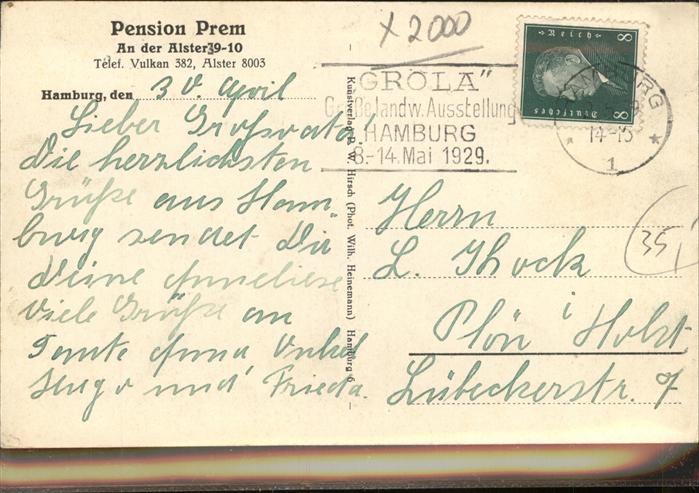 Pension Prem
An der Alster 9-10
Telef. Vulkan 382, Alster 8003
Hamburg, den 30. April
Lieber Großvater!
Die herzlichsten
Grüße aus Ham-
burg sendet Dir
Deine Anneliese
Viele Grüße an
Tante Anna Onkel
Hugo und Frieda.
Kunstverlag P. W. Hirsch (Phot. Wilh. Heinemann) Hamburg 6
X 2000
"GROLA"
Große landw. Ausstellung
HAMBURG
8.-14. Mai 1929.
HAMBURG
14-15
* 1 *
8 Reich 8
Deutsches
35,
Herrn
L. Thock
Plön i Holst
Lübeckerstr. 7